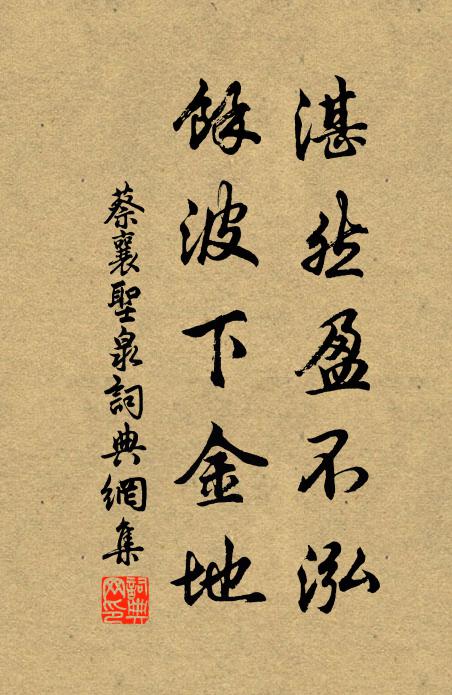 湛然盈不泓
餘波下金地
蔡襄聖泉詞典網集
詞典网印